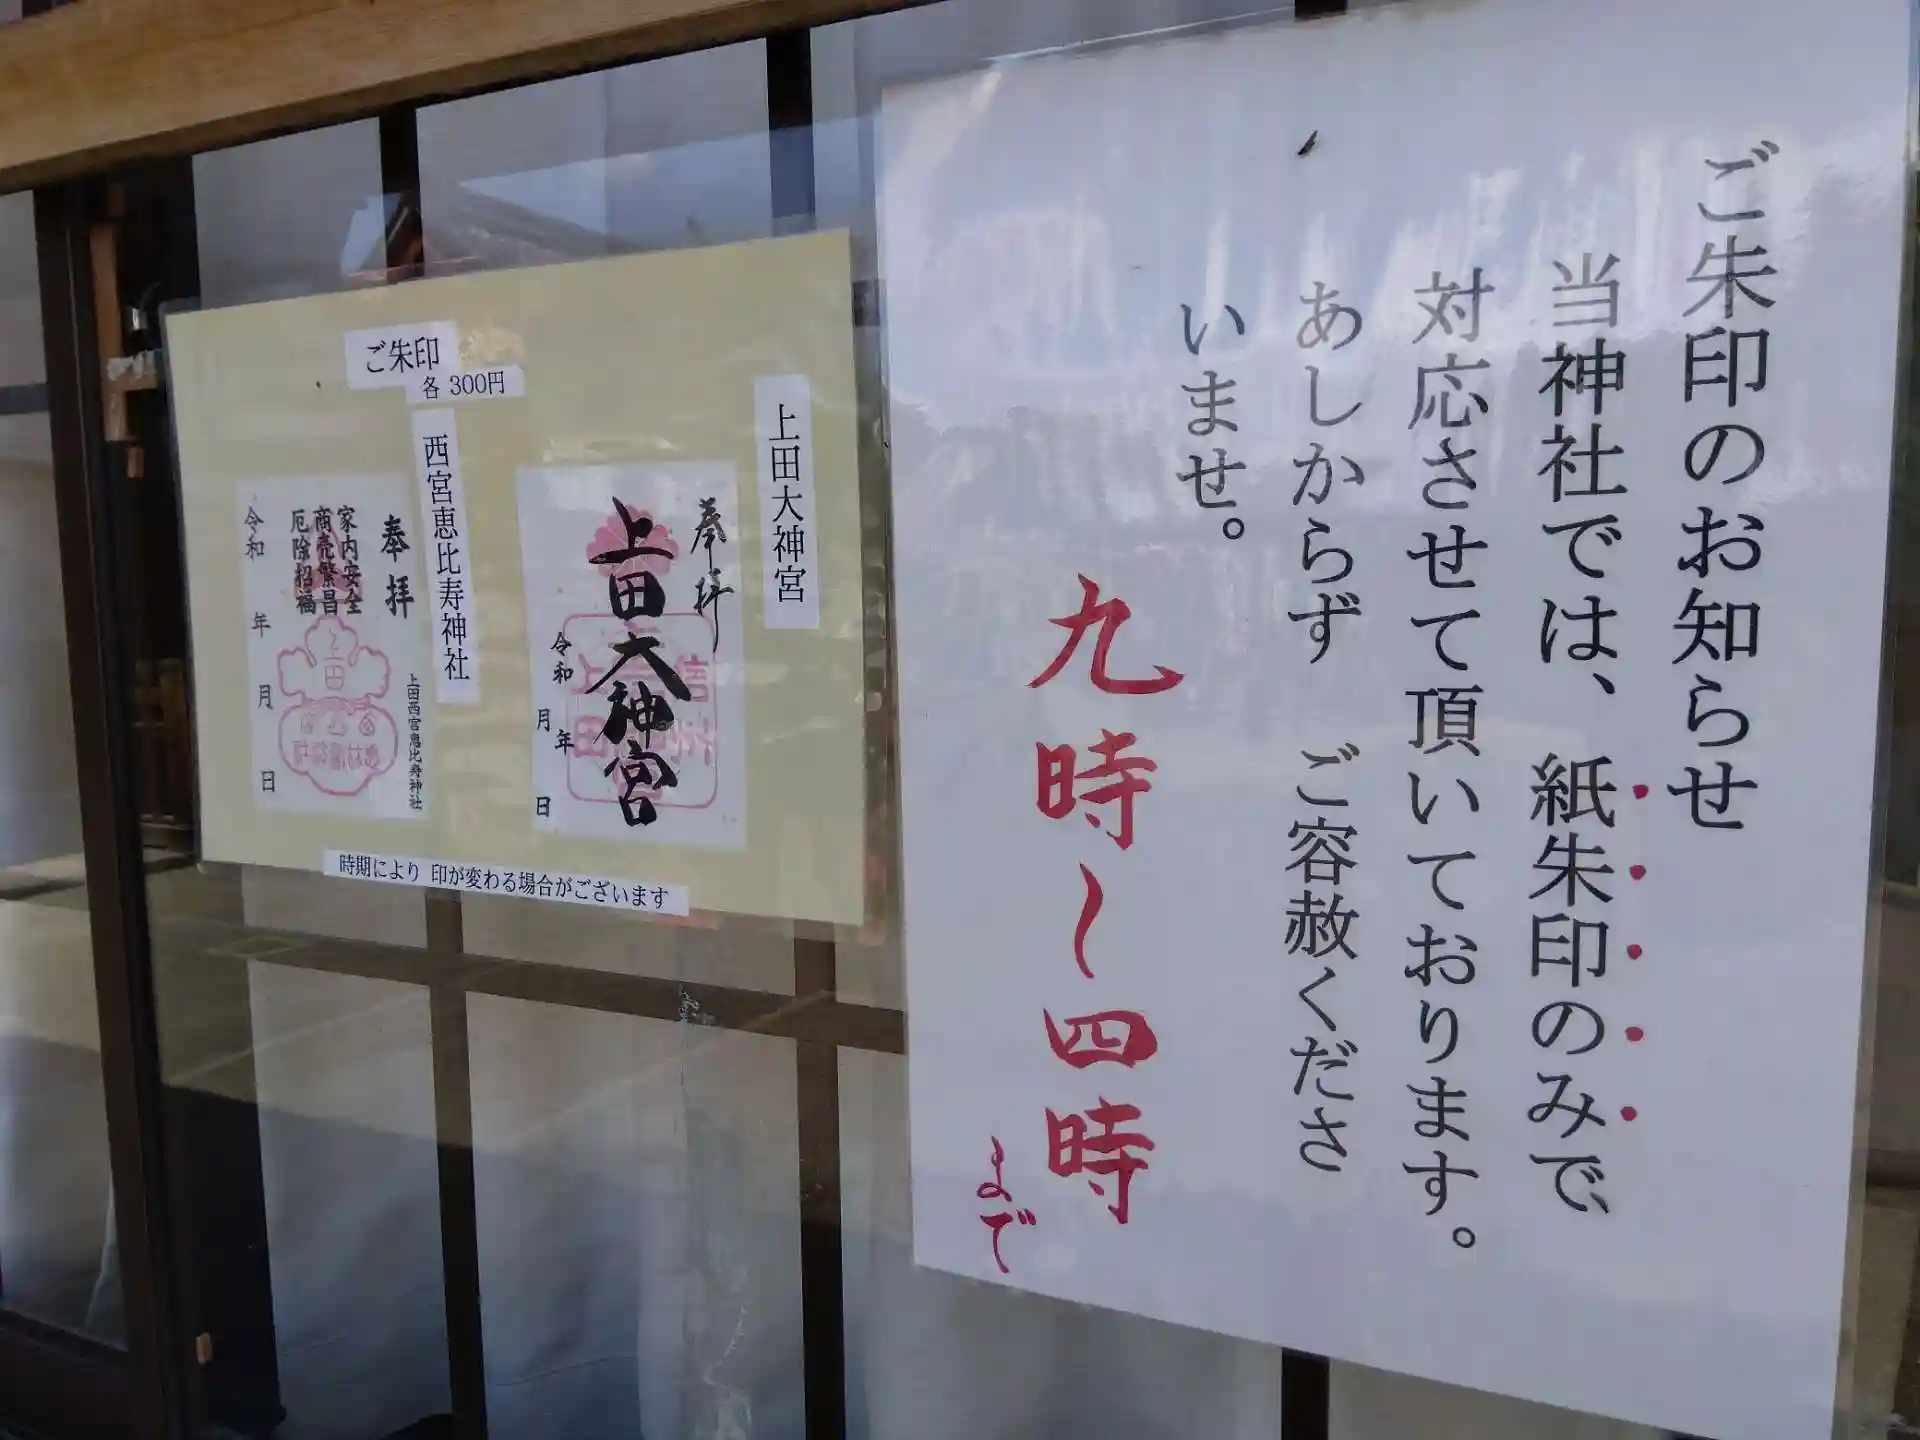 ご朱印のお知らせ
当神社では、紙朱印のみで
対応させて頂いております。
あしからず ご容赦くださ
いませ。
九時〜四時
まで
ご朱印
各 300円
上田大神宮
奉拝
上田大神宮
令和 年
月 日
西宮恵比寿神社
奉拝
家内安全
商売繁昌
厄除招福
上田西宮恵比寿神社
令和 年 月 日
時期により 印が変わる場合がございます